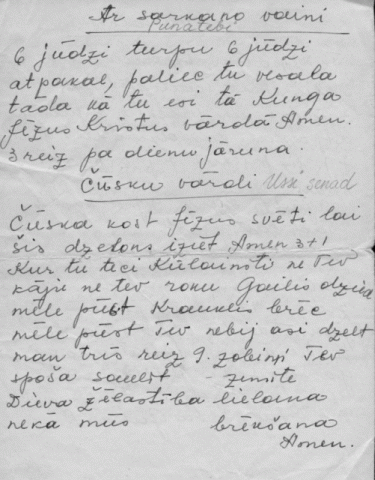 Ar sarkano vaini
6 jūdzi turpu 6 jūdzi
atpakaļ, paliec tu vesala
tāda kā tu esi tā Kunga
Jēzus Kristus vārdā Amen.
3 reiz pa dienu jāruna.
Čūsku vārdi
Čūska kost Jēzus svēti lai
šis dzelons iziet Amen 3+1
Kur tu teci ne Tev
kāju ne tev roku Gailis dzied
mēle pūst Krauklis brēc
mēle pūst Tev nebij asi dzelt
man trīs reiz 9. zobiņi Tev
spoša saulīt - zemīte
Dieva žēlastība lielana
nekā mūs brēkšana
Amen.